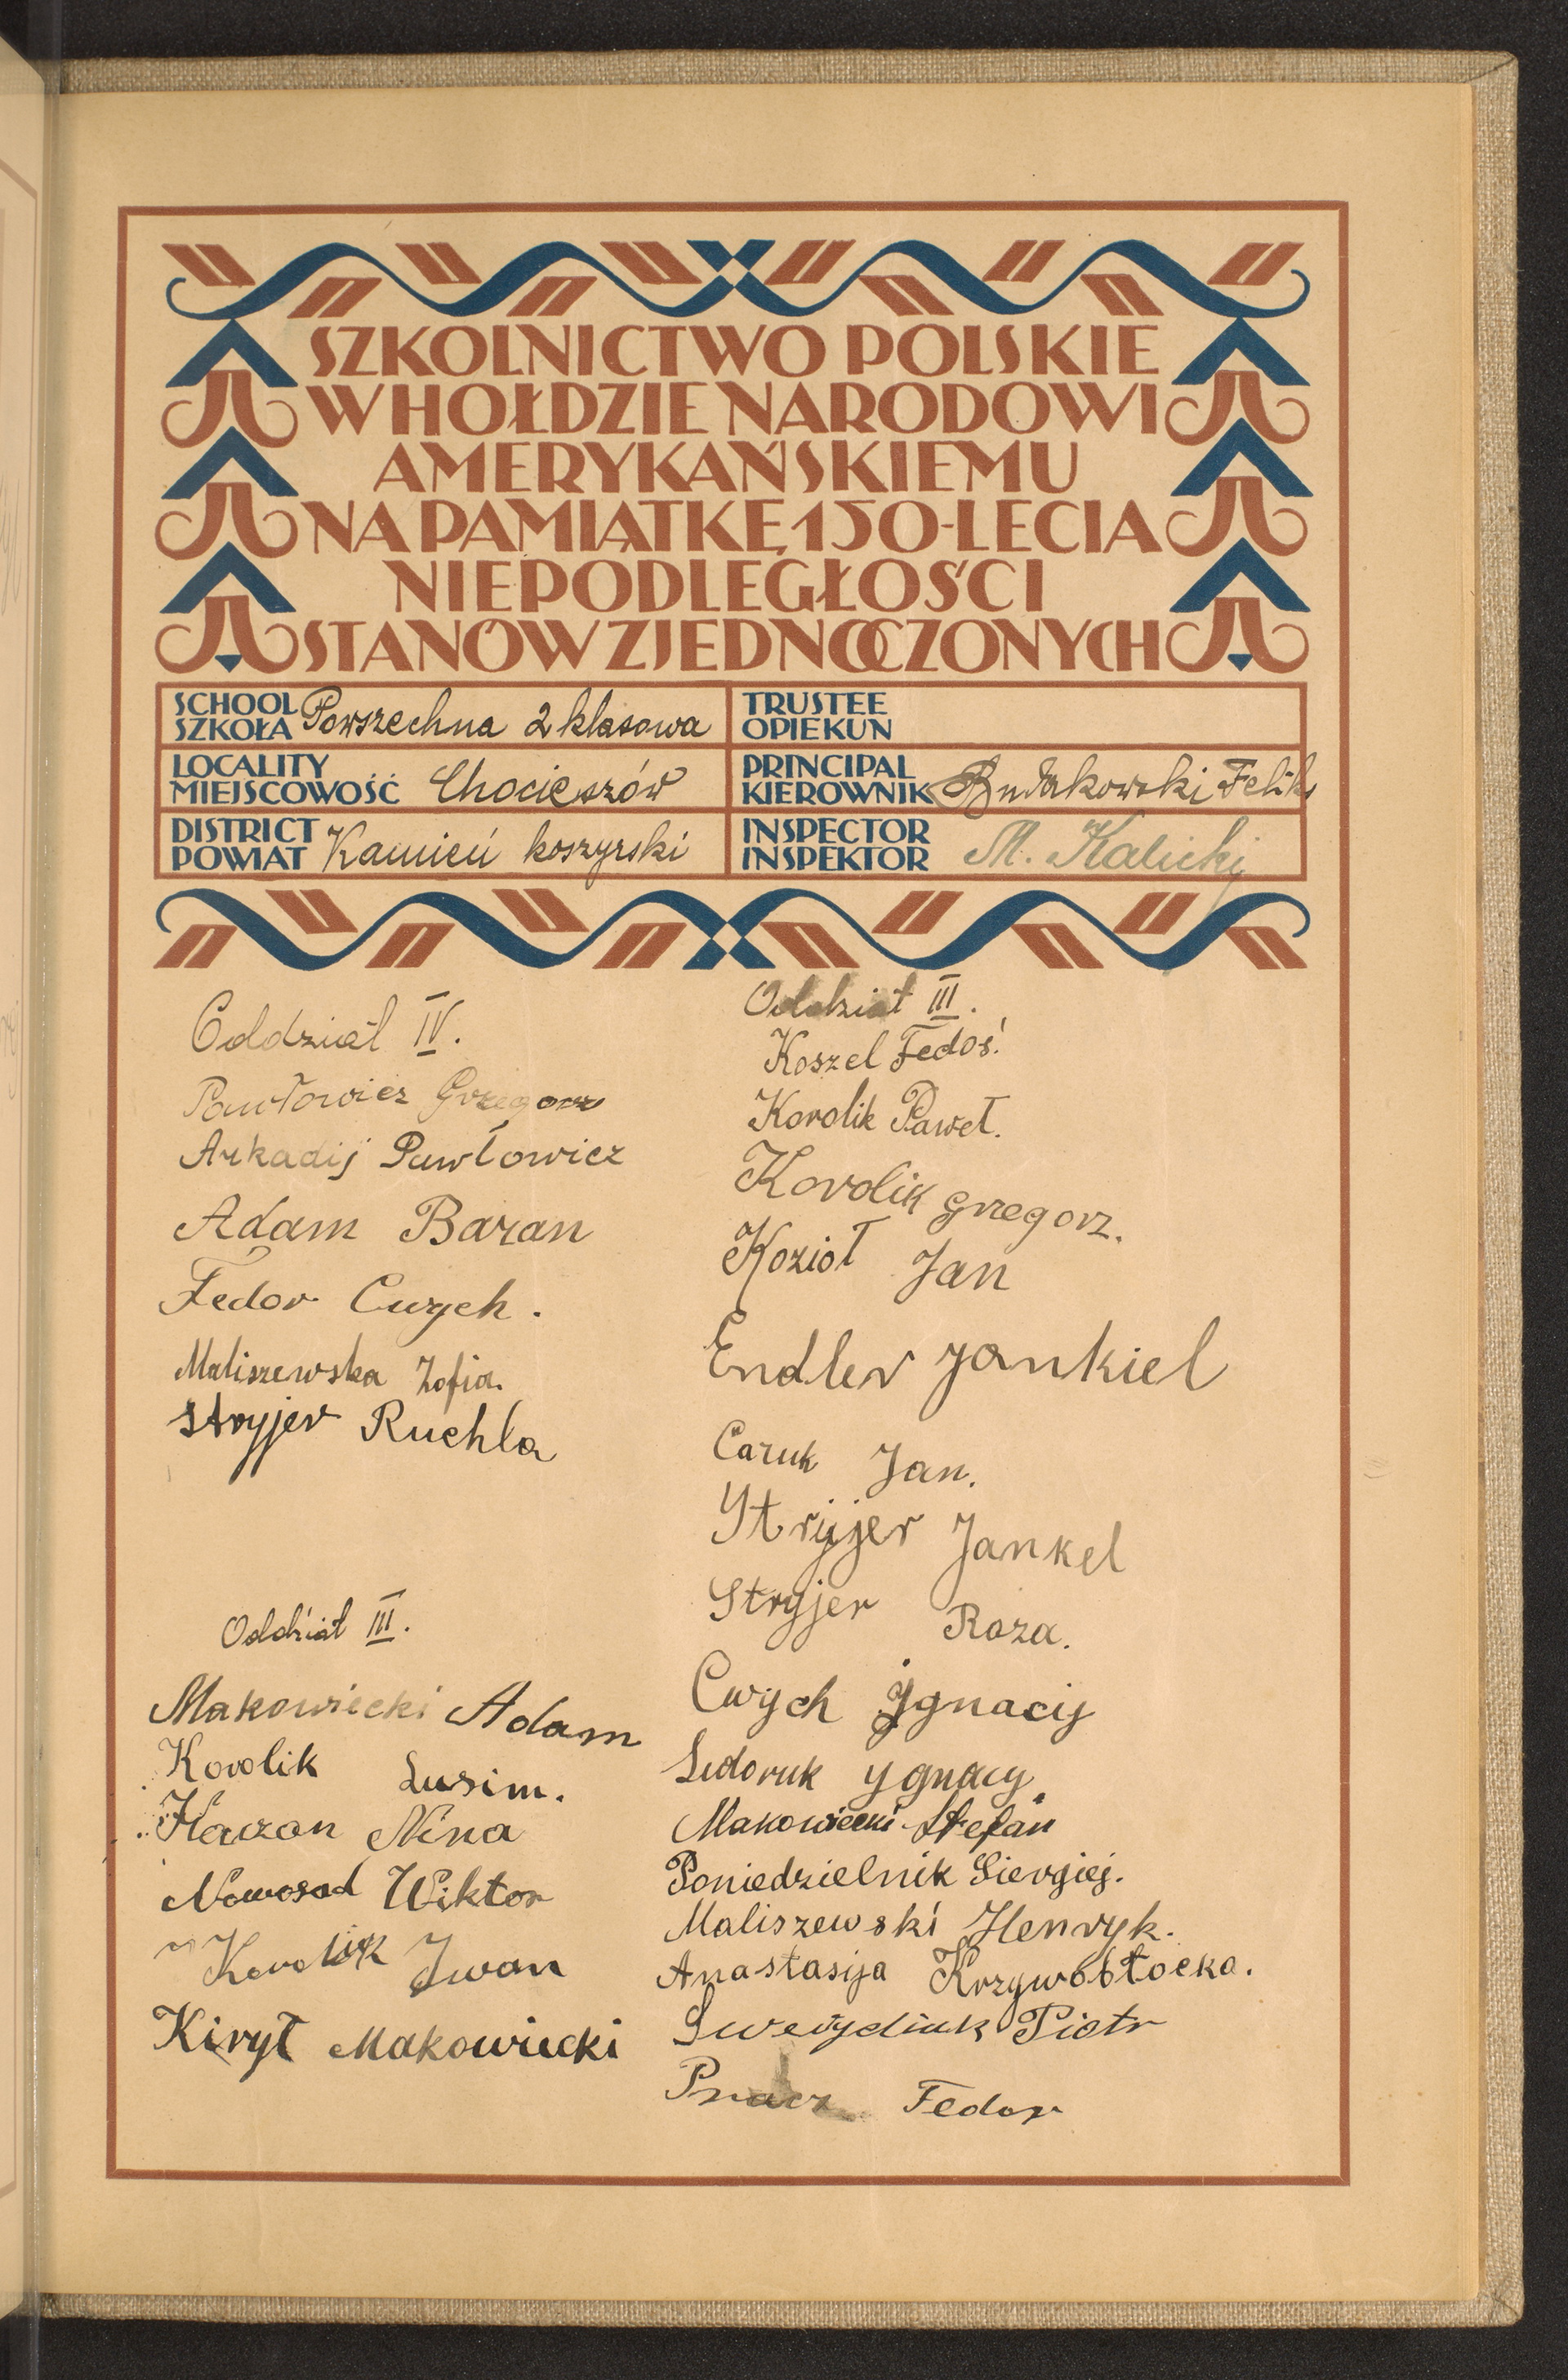 SZKOLNICTWO POLSKIE
W HOŁDZIE NARODOWI
AMERYKAŃSKIEMU
NA PAMIĄTKĘ 150-LECIA
NIEPODLEGŁOŚCI
STANÓW ZJEDNOCZONYCH
SCHOOL
SZKOŁA Powszechna 2 klasowa
LOCALITY
MIEJSCOWOŚĆ Chocieszów
DISTRICT
POWIAT Kamień koszyrski
TRUSTEE
OPIEKUN
PRINCIPAL
KIEROWNIK Feliks
INSPECTOR
INSPEKTOR M. Kalicki
Oddział IV.
Pawłowicz Grzegorz
Arkadij Pawłowicz
Adam Baran
Fedor Cwych.
Maliszewska Zofia.
Stryjer Ruchla
Oddział III.
Makowiecki Adam
Korolik Lusim.
Nina
Nowosad Wiktor
Korolik Iwan
Kirył Makowiecki
Oddział III.
Koszel Fedoś.
Korolik Paweł.
Korolik Grzegorz.
Kozioł Jan
Endler Jankiel
Caruk Jan.
Stryjer Jankel
Stryjer Roza.
Cwych Ignacij
Sidoruk Ygnacy.
Makowiecki Stefan
Poniedzielnik Siergiej.
Maliszewski Henryk.
Anastasija Krzywobłocka.
Piotr
Pracz Fedor